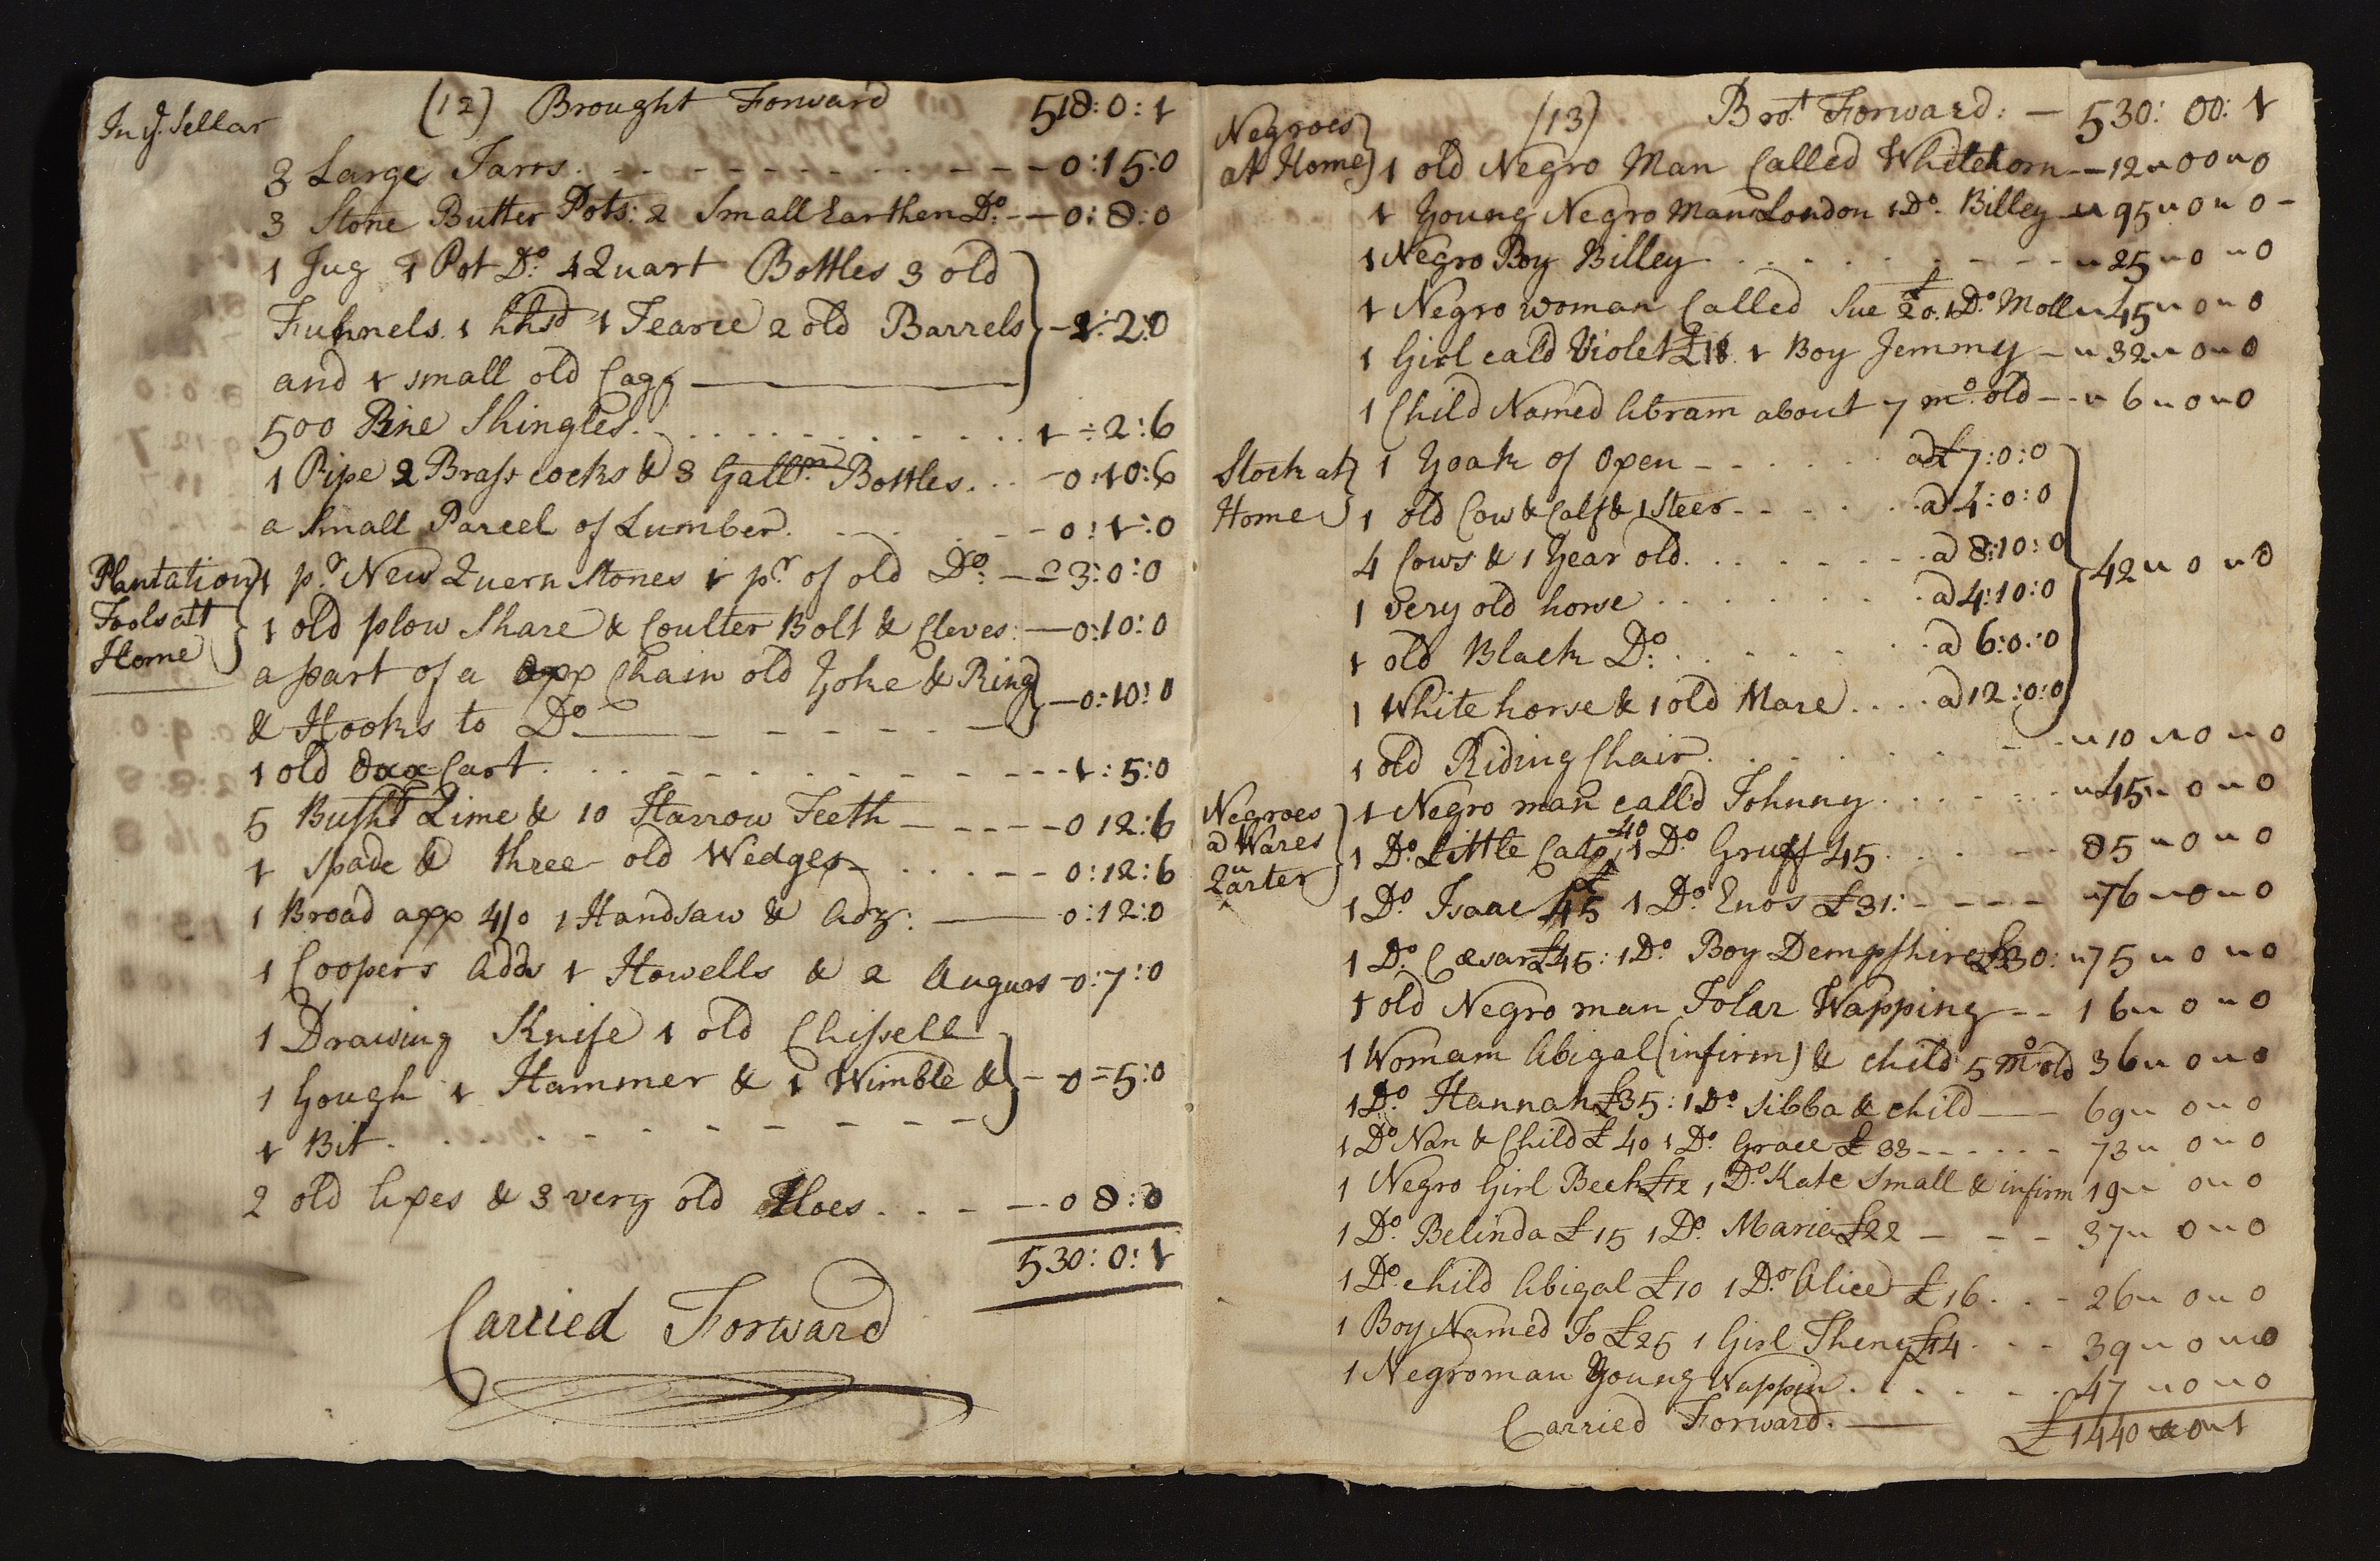 In ye. Sellar
(12) Brought Forward 518:0:1
3 Large Jarrs. - - - - 0:15:0
3 Stone Butter Pots: 2 Small Earthen Do: - - 0:8:0
1 Jug 1 Pot Do: 4 Quart Bottles 3 old
Funnels. 1 hhsd 1 Tearce 2 old Barrels - 1:2:0
and 1 small old Cagg
500 Pine Shingles. . . . . 1:2:6
1 Pipe 2 Brass cocks & 3 Galln. Bottles. . . - 0:10:6
a Small Parcel of Lumber. . . - - 0:1:0
Plantation
Tools att
Home
1 pr. New Quern Stones 1 pr. of old Do: - 3:0:0
1 old plow Share & Coulter Bolt & Cleves: - 0:10:0
a part of a oxx Chain old Yoke & Ring
& Hooks to Do - - - - 0:10:0
1 old Oxx Cart. . . - - - - 1:5:0
5 Bushs Lime & 10 Harrow Teeth - - - - 0 12:6
1 Spade & three old Wedges - . . . - - 0:12:6
1 Broad axx 4/0 1 Handsaw & Adz: - 0:12:0
1 Coopers Adds 1 Howells & 2 Augurs - 0:7:0
1 Drawing Knife 1 old Chissell
1 Gough 1 Hammer & 1 Wimble & - 0=5:0
1 Bit. . . - - - -
2 old Axes & 3 very old Hoes. . . - - 0 8:0
530:0:1
Carried Forward
Negroes
at Home
(13) Brot Forward: - 530:00:1
1 old Negro Man Called Whitehorn - 12 " 00 " 0
1 Young Negro Man London 1 Do. Billey " 95 " 0 " 0 -
1 Negro Boy Billey . . . - - " 25 " 0 " 0
1 Negro woman Called Sue £20. 1 Do. Moll " 45 " 0 " 0
1 Girl cald Violet £18. 1 Boy Jemmy - " 32 " 0 " 0
1 Child Named Abram about 7 mo. old - - " 6 " 0 " 0
Stock at
Home
1 Yoak of Oxen - - - . . . a £7:0:0
1 old Cow & Calf & 1 Steer - - . . a 4:0:0
4 Cows & 1 Year old. . . . - - a 8:10:0
42 " 0 " 0
1 very old horse . . . . . a 4:10:0
1 old Black Do: . . . . a 6:0:0
1 White horse & 1 old Mare . . . . a 12:0:0
1 old Riding Chair. . . . - - " 10 " 0 " 0
Negroes
a Wares
Quarter
1 Negro man call'd Johnny. . . . . " 45 " 0 " 0
1 Do. Little Cato £40 1 Do. Gruff 45. . . - - 85 " 0 " 0
1 Do. Isaac £45 1 Do. Enos £31: - - - - " 76 " 0 " 0
1 Do. Cæsar £45: 1 Do. Boy Dempshire £30: " 75 " 0 " 0
1 old Negro man Tolar Wapping - - 16 " 0 " 0
1 Womam Abigal (infirm) & child 5 mo old 36 " 0 " 0
1 Do. Hannah £35: 1 Do. Sibba & child - 69 " 0 " 0
1 Do Nan & Child £40 1 Do. Grace £33 - - - - - 73 " 0 " 0
1 Negro Girl Beck 1 Do. Kate Small & infirm 19 " 0 " 0
1 Do. Belinda £15 1 Do. Maria £22 - - - 37 " 0 " 0
1 Do. child Abigal £10 1 Do. Alice £16. . . - 26 " 0 " 0
1 Boy Named Jo £25 1 Girl Theny £14. . . - 39 " 0 " 0
1 Negroman Young Wappin. . . . . 47 " 0 " 0
Carried Forward. - £1440 " 0 " 1